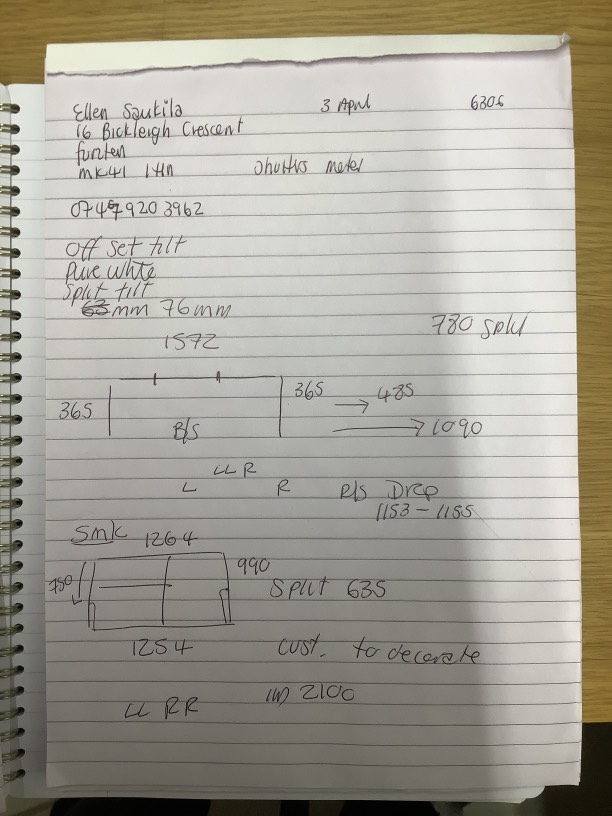 Ellen Saukila 3 April 6306
16 Bickleigh Crescent
furzten
MK41 1HN Shutters meter
0747920 3962
Off set tilt
Pure white
Split tilt
63mm 76mm
780 split
1572
365 365 → 485
B/S → 1090
LL R
L R R/S Drop
1153 - 1155
Smk 1264
990
750 Split 635
1254 cust. to decorate
2100
LL RR